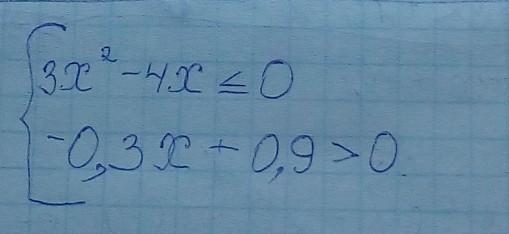 3x² - 4x ≤ 0
-0,3x + 0,9 > 0